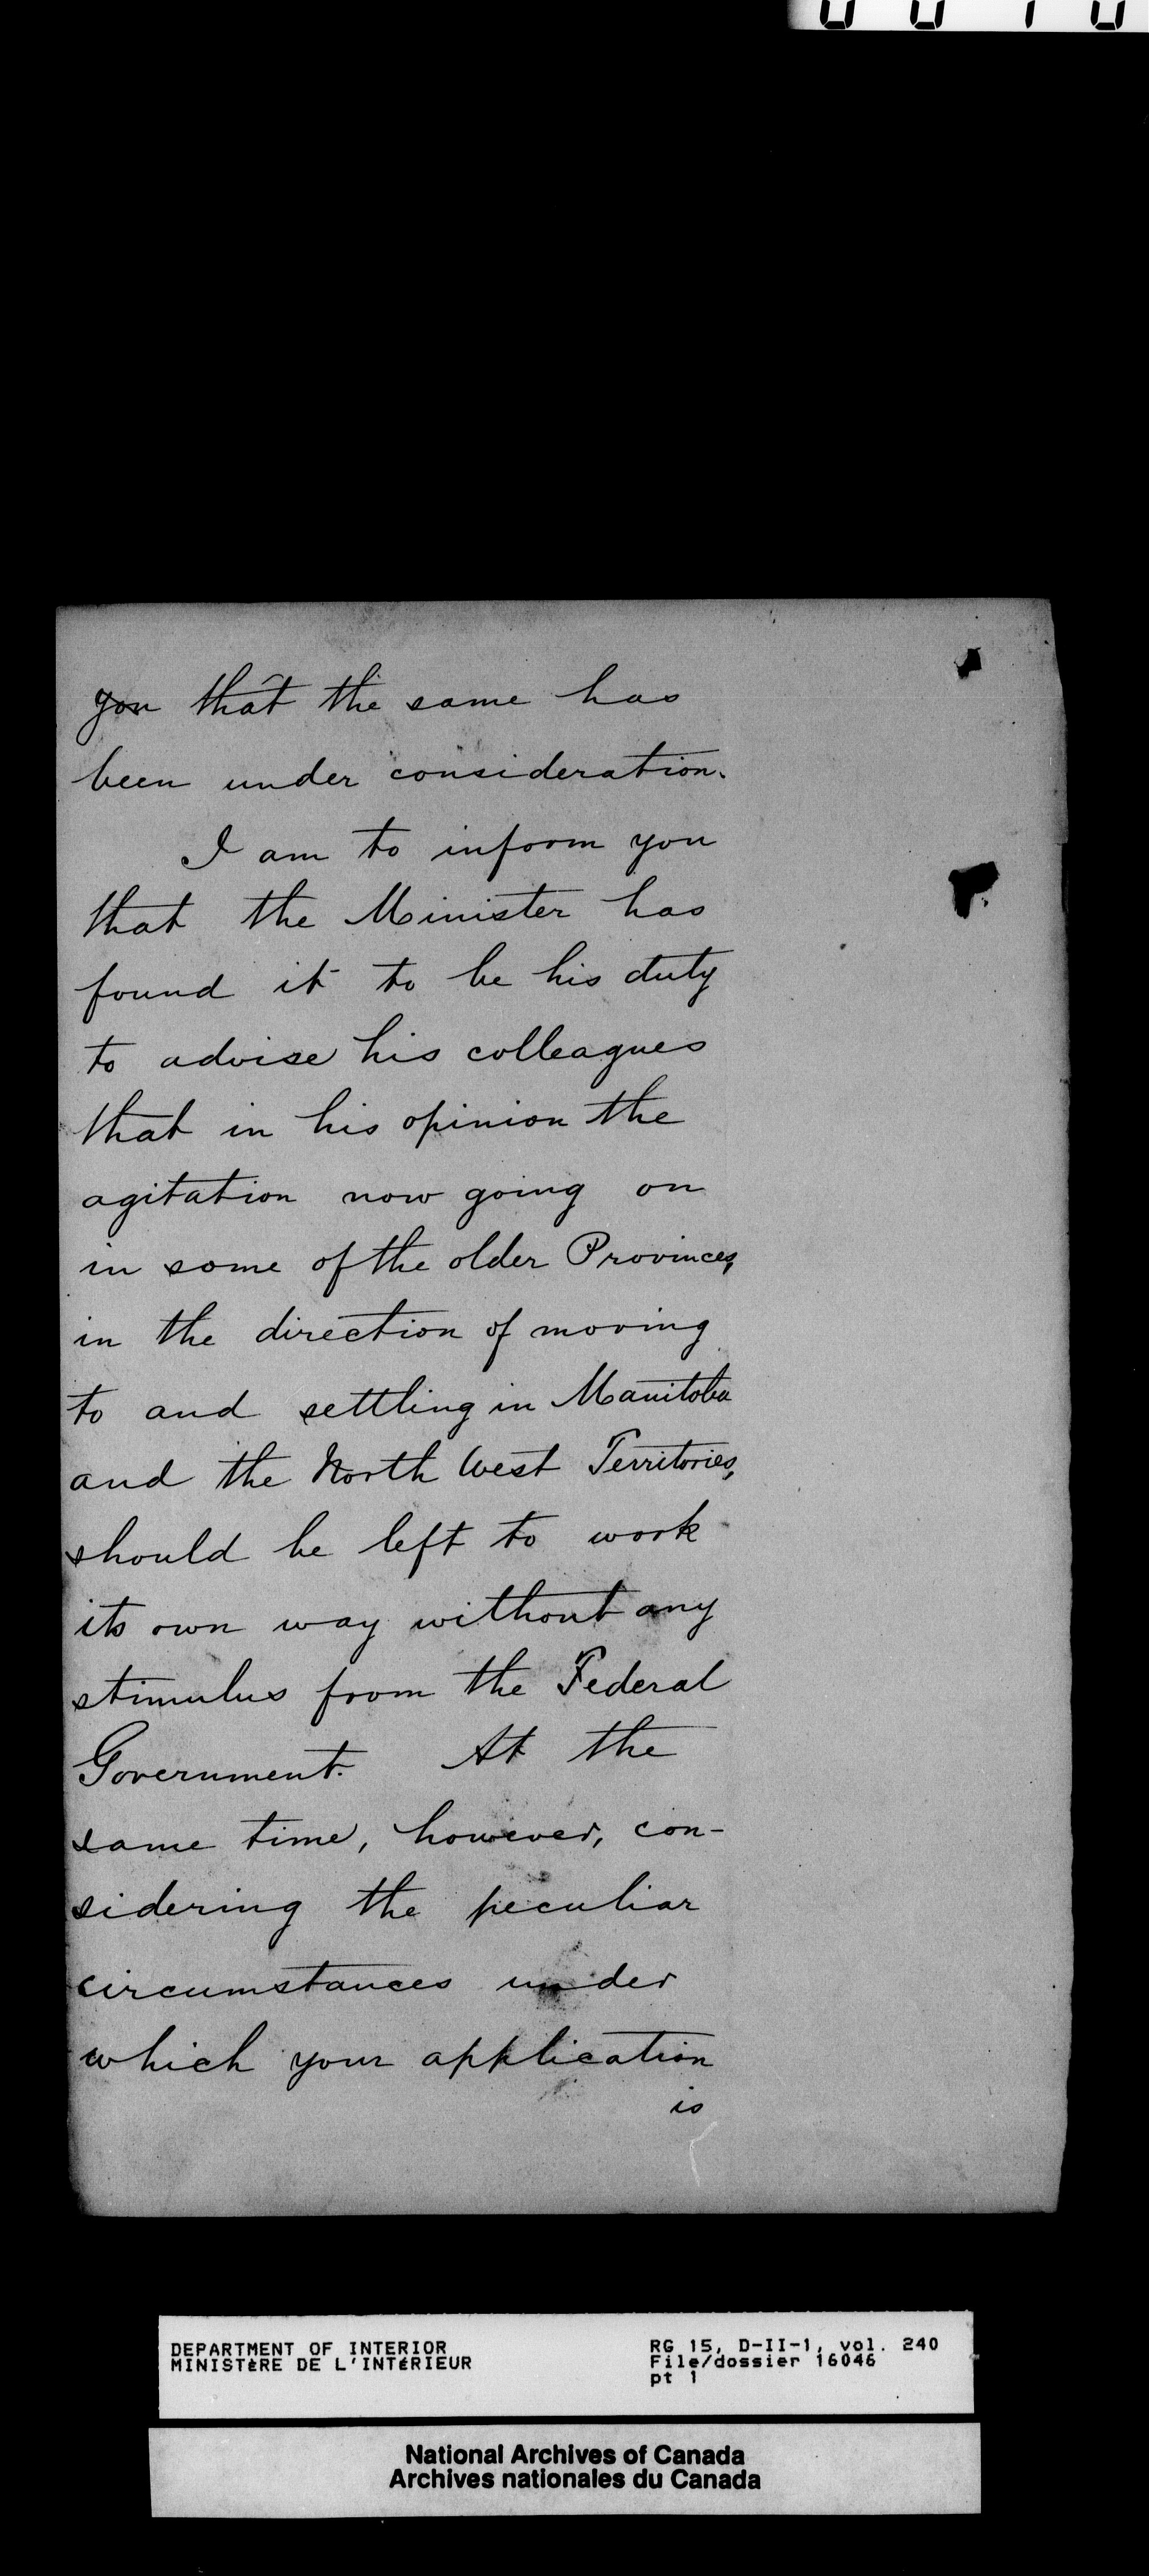 you that the same has
been under consideration.
I am to inform you
that the Minister has
found it to be his duty
to advise his colleagues
that in his opinion the
agitation now going on
in some of the older Provinces,
in the direction of moving
to and settling in Manitoba
and the North West Territories,
should be left to work
its own way without any
stimulus from the Federal
Government. At the
same time, however, con-
sidering the peculiar
circumstances under
which your application
is
DEPARTMENT OF INTERIOR
MINISTÈRE DE L'INTÉRIEUR
RG 15, D-II-1, vol. 240
File/dossier 16046
pt 1
National Archives of Canada
Archives nationales du Canada